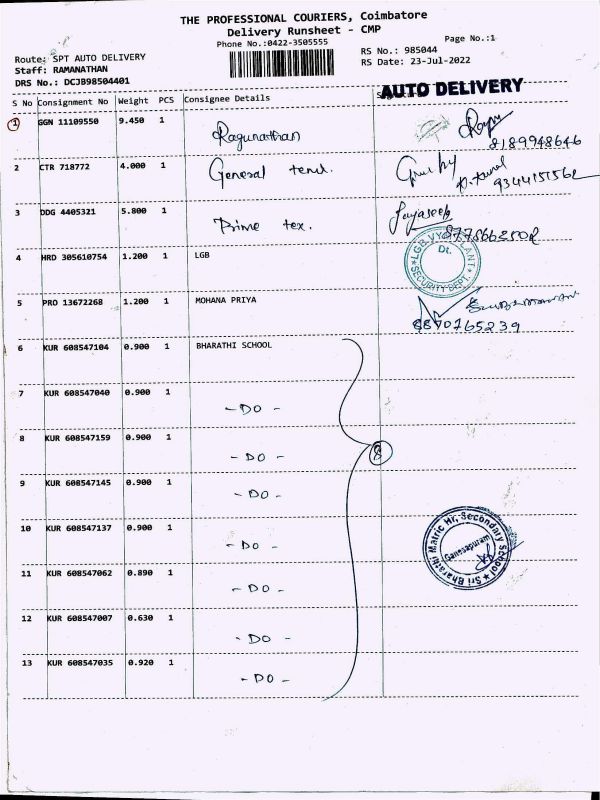 THE PROFESSIONAL COURIERS, Coimbatore
Delivery Runsheet - CMP
Phone No.:0422-3505555
Page No.:1
Route: SPT AUTO DELIVERY
RS No.: 985044
Staff: RAMANATHAN
RS Date: 23-Jul-2022
DRS No.: DCJB98504401
AUTO DELIVERY
S No Consignment No Weight PCS Consignee Details
1 GGN 11109550 9.450 1 Ragunathan
8189948646
2 CTR 718772 4.000 1 General
9344151562
3 DDG 4405321 5.800 1 Prime tex.
Jayaseeb
4 HRD 305610754 1.200 1 LGB
SECURITY DEPT.
5 PRO 13672268 1.200 1 MOHANA PRIYA
8870765239
6 KUR 608547104 0.900 1 BHARATHI SCHOOL
7 KUR 608547040 0.900 1 - DO -
8 KUR 608547159 0.900 1 - DO -
8
9 KUR 608547145 0.900 1 - DO -
10 KUR 608547137 0.900 1 - DO -
Sri Bharathi Matric Hr, Secondary School
Ganesapuram
11 KUR 608547062 0.890 1 - DO -
12 KUR 608547007 0.630 1 - DO -
13 KUR 608547035 0.920 1 - DO -